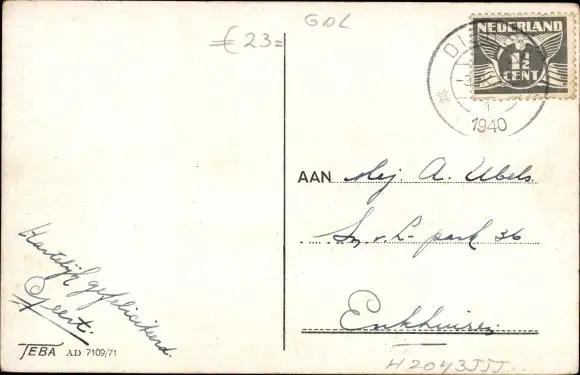 € 23=
GDL
NEDERLAND
1½
CENT
1940
AAN Mej. A. Ubels
Sn. v. L- park 36
Enkhuizen
Hartelijk gefeliciteerd.
Geert.
TEBA AD 7109/71
H2043JJJ